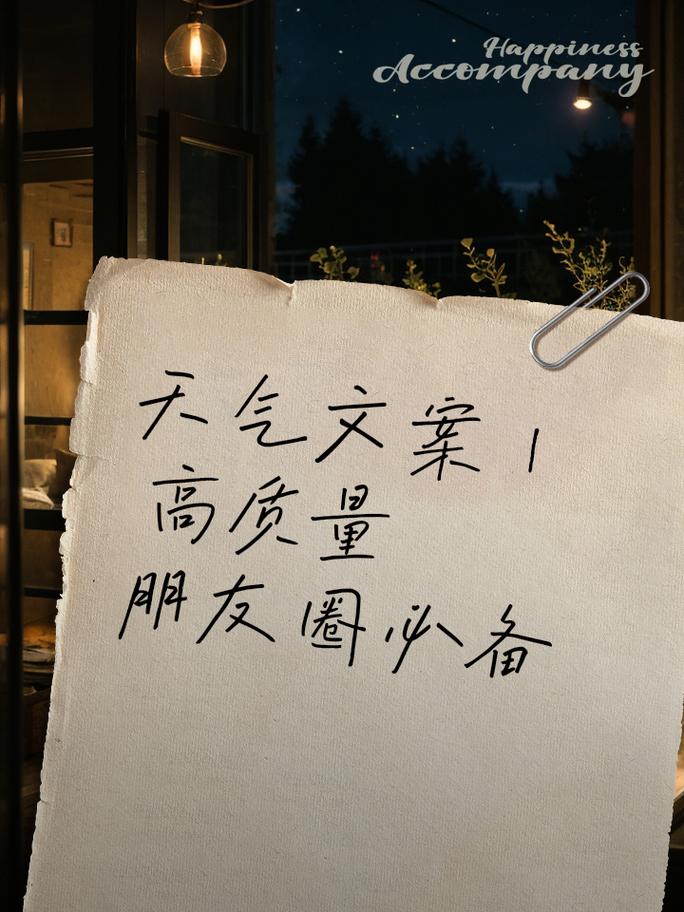 Happiness
Accompany
天气文案|
高质量
朋友圈必备